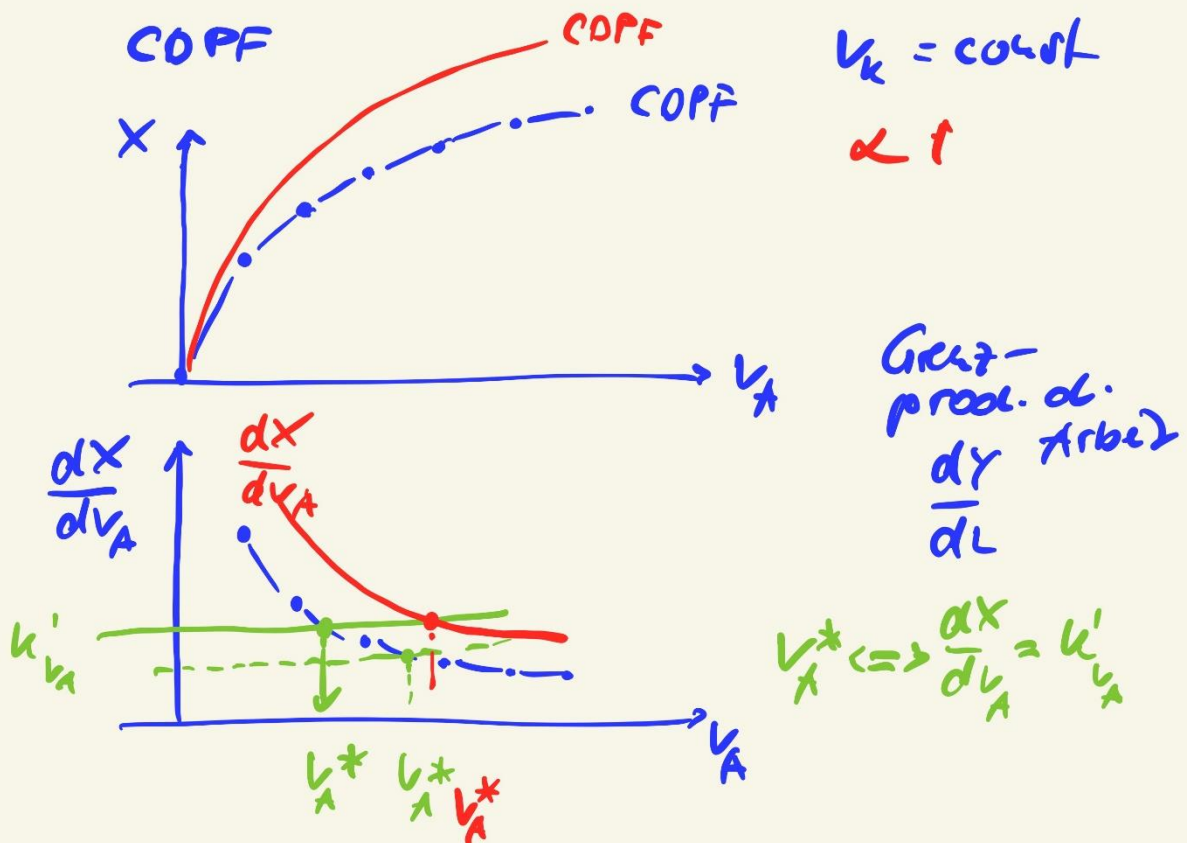 CDPF
CDPF
CDPF
V_K = const
α ↑
X
V_A
Grenz-
prod. d.
Arbeit
dY
dL
dX
dV_A
dX
dV_A
K'_{V_A}
V_A^* <=> dX/dV_A = K'_{V_A}
V_A
V_A^* V_A^* V_A^*